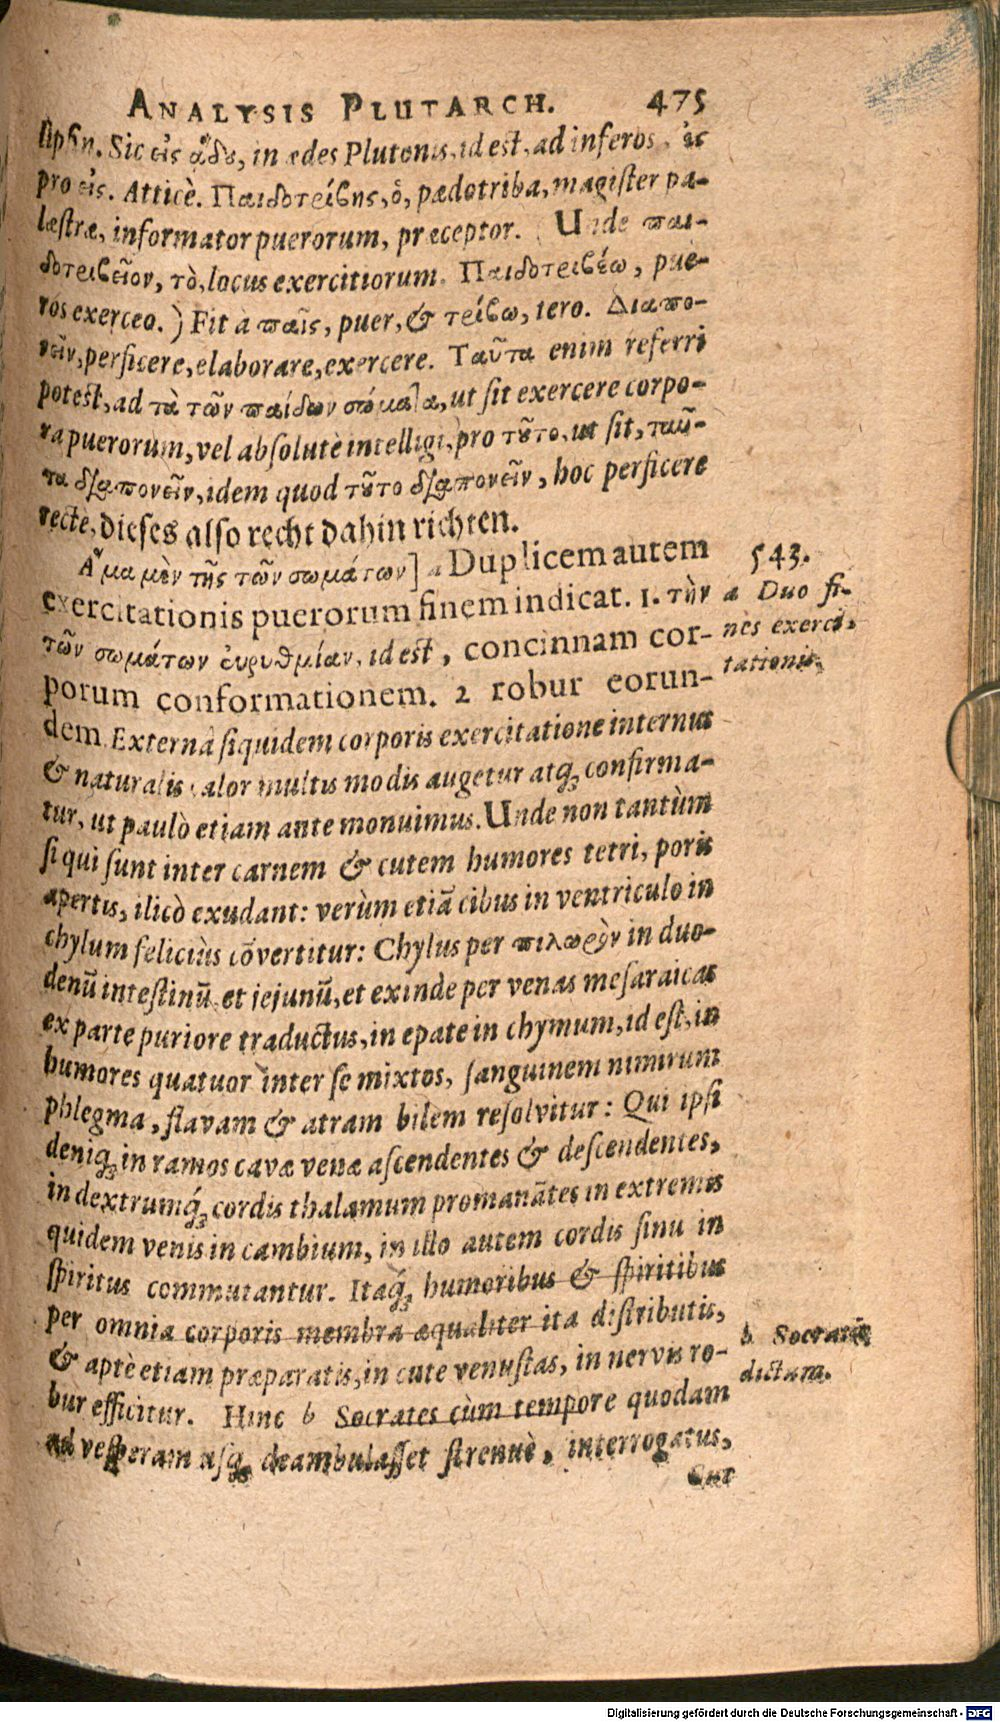 ANALYSIS PLUTARCH. 475
Sic εἰς ᾅδου, in ædes Plutonis, id est, ad inferos, ἐς
pro εἰς. Atticè. Παιδοτρίβης, ὁ, pædotriba, magister pa-
læstræ, informator puerorum, præceptor. Unde παι-
δοτριβεῖον, τὸ, locus exercitiorum. Παιδοτριβέω, pue-
ros exerceo.) Fit à παῖς, puer, & τρίβω, tero. Διαπο-
νεῖν, perficere, elaborare, exercere. Ταῦτα enim referri
potest, ad τὰ τῶν παίδων σώματα, ut sit exercere corpo-
ra puerorum, vel absolutè intelligi, pro τοῦτο, ut sit, ταῦ-
τα διαπονεῖν, idem quod τοῦτο διαπονεῖν, hoc perficere
rectè, dieses also recht dahin richten.
Ἅμα μὲν τῆς τῶν σωμάτων] a Duplicem autem
543.
exercitationis puerorum finem indicat. 1. τὴν
a Duo fi-
τῶν σωμάτων εὐρυθμίαν, id est, concinnam cor-
nes exerci-
porum conformationem. 2 robur eorun-
tationis.
dem. Externâ siquidem corporis exercitatione internus
& naturalis calor multis modis augetur atq; confirma-
tur, ut paulò etiam ante monuimus. Unde non tantùm
si qui sunt inter carnem & cutem humores tetri, poris
apertis, ilicò exudant: verùm etiã cibus in ventriculo in
chylum feliciùs cõvertitur: Chylus per πυλωρὸν in duo-
denũ intestinũ et jejunũ, et exinde per venas mesaraicas
ex parte puriore traductus, in epate in chymum, id est, in
humores quatuor inter se mixtos, sanguinem nimirum
phlegma, flavam & atram bilem resolvitur: Qui ipsi
deniq; in ramos cavæ venæ ascendentes & descendentes,
in dextrumq́; cordis thalamum promanãtes in extremis
quidem venis in cambium, in illo autem cordis sinu in
spiritus commutantur. Itaq́; humoribus & spiritibus
per omnia corporis membra æqualiter ita distributis,
b Socratis
& aptè etiam præparatis, in cute venustas, in nervis ro-
dictum.
bur efficitur. Hinc b Socrates cùm tempore quodam
ad vesperam usq; deambulasset strenuè, interrogatus,
Cur
Digitalisierung gefördert durch die Deutsche Forschungsgemeinschaft - DFG